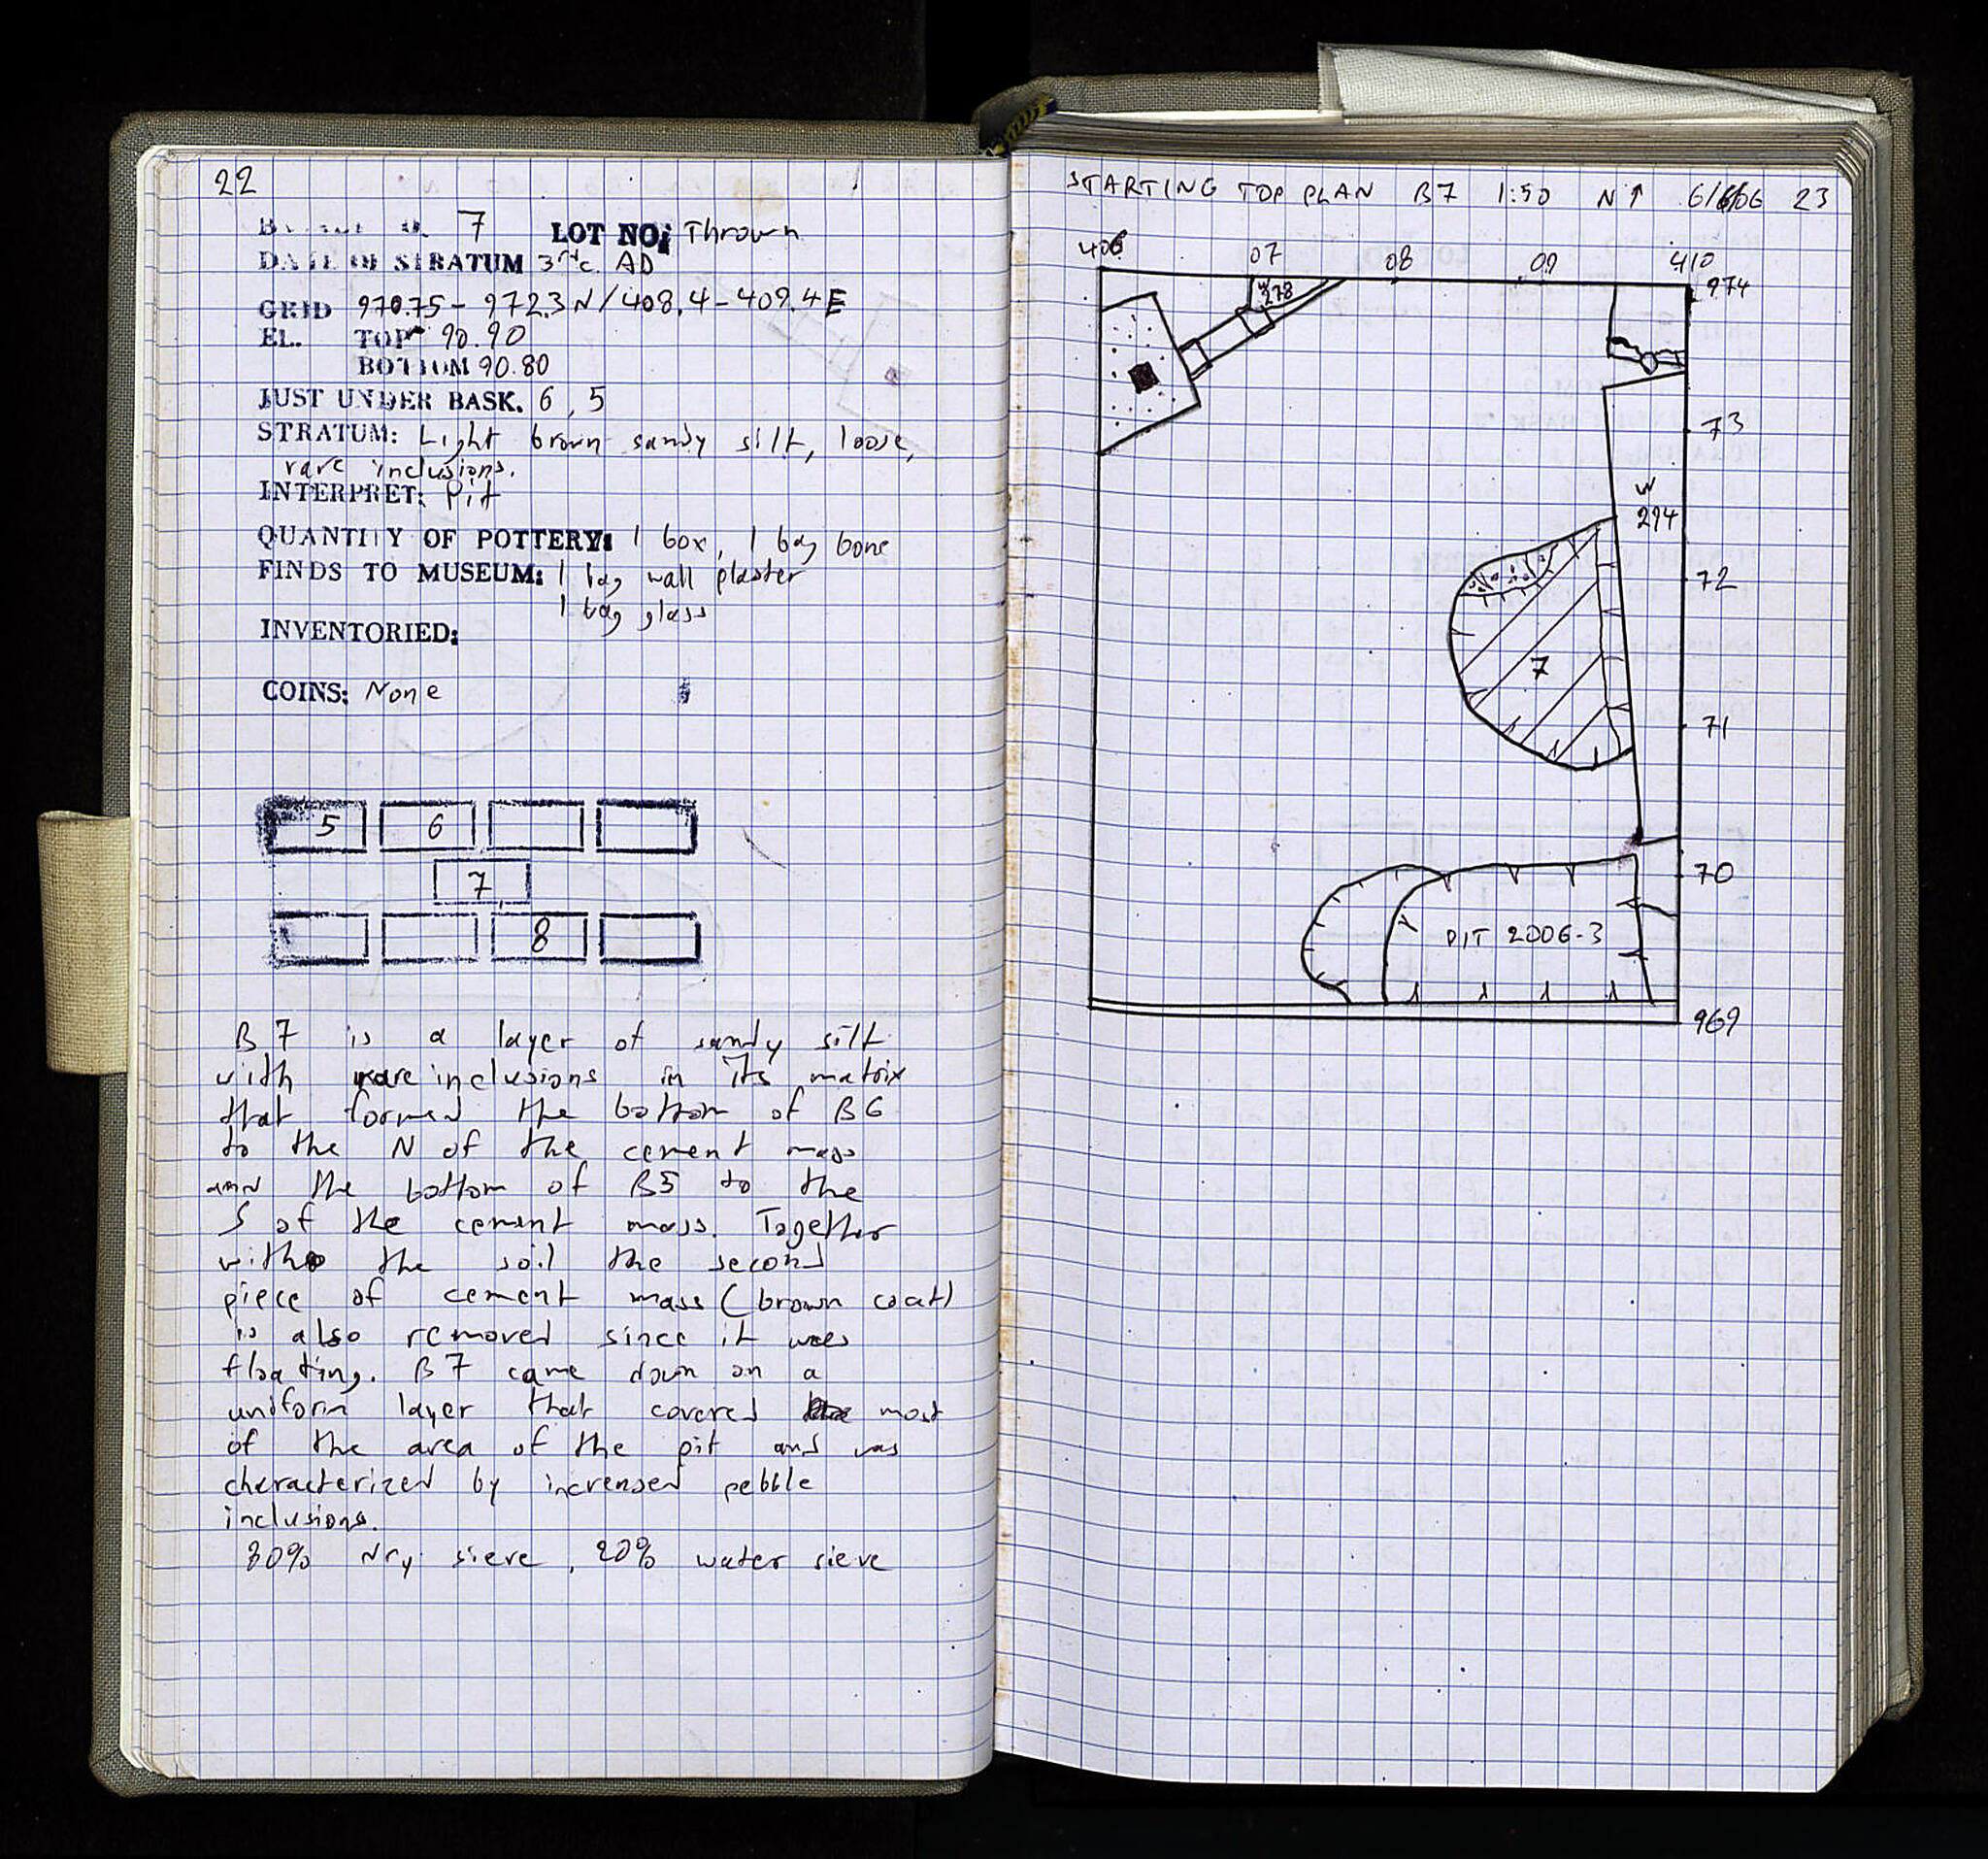 22
7 LOT NO: Thrown
DATE OF STRATUM 3rd c. AD
GRID 970.75 - 972.3 N / 408.4 - 409.4 E
EL. TOP 90.90
BOTTOM 90.80
JUST UNDER BASK. 6, 5
STRATUM: Light brown sandy silt, loose,
rare inclusions.
INTERPRET: Pit
QUANTITY OF POTTERY: 1 box, 1 bag bone
FINDS TO MUSEUM: 1 bag wall plaster
1 bag glass
INVENTORIED:
COINS: None
5 6
7
8
B7 is a layer of sandy silt
with rare inclusions in its matrix
that formed the bottom of B6
to the N of the cement mass
and the bottom of B5 to the
S of the cement mass. Together
with the soil the second
piece of cement mass (brown coat)
is also removed since it was
floating. B7 came down on a
uniform layer that covered most
of the area of the pit and was
characterized by increased pebble
inclusions.
80% dry sieve, 20% water sieve
STARTING TOP PLAN B7 1:50 N↑ 6/6/06 23
406 07 08 09 410
974
W
278
73
W
294
72
7
71
70
PIT 2006-3
969